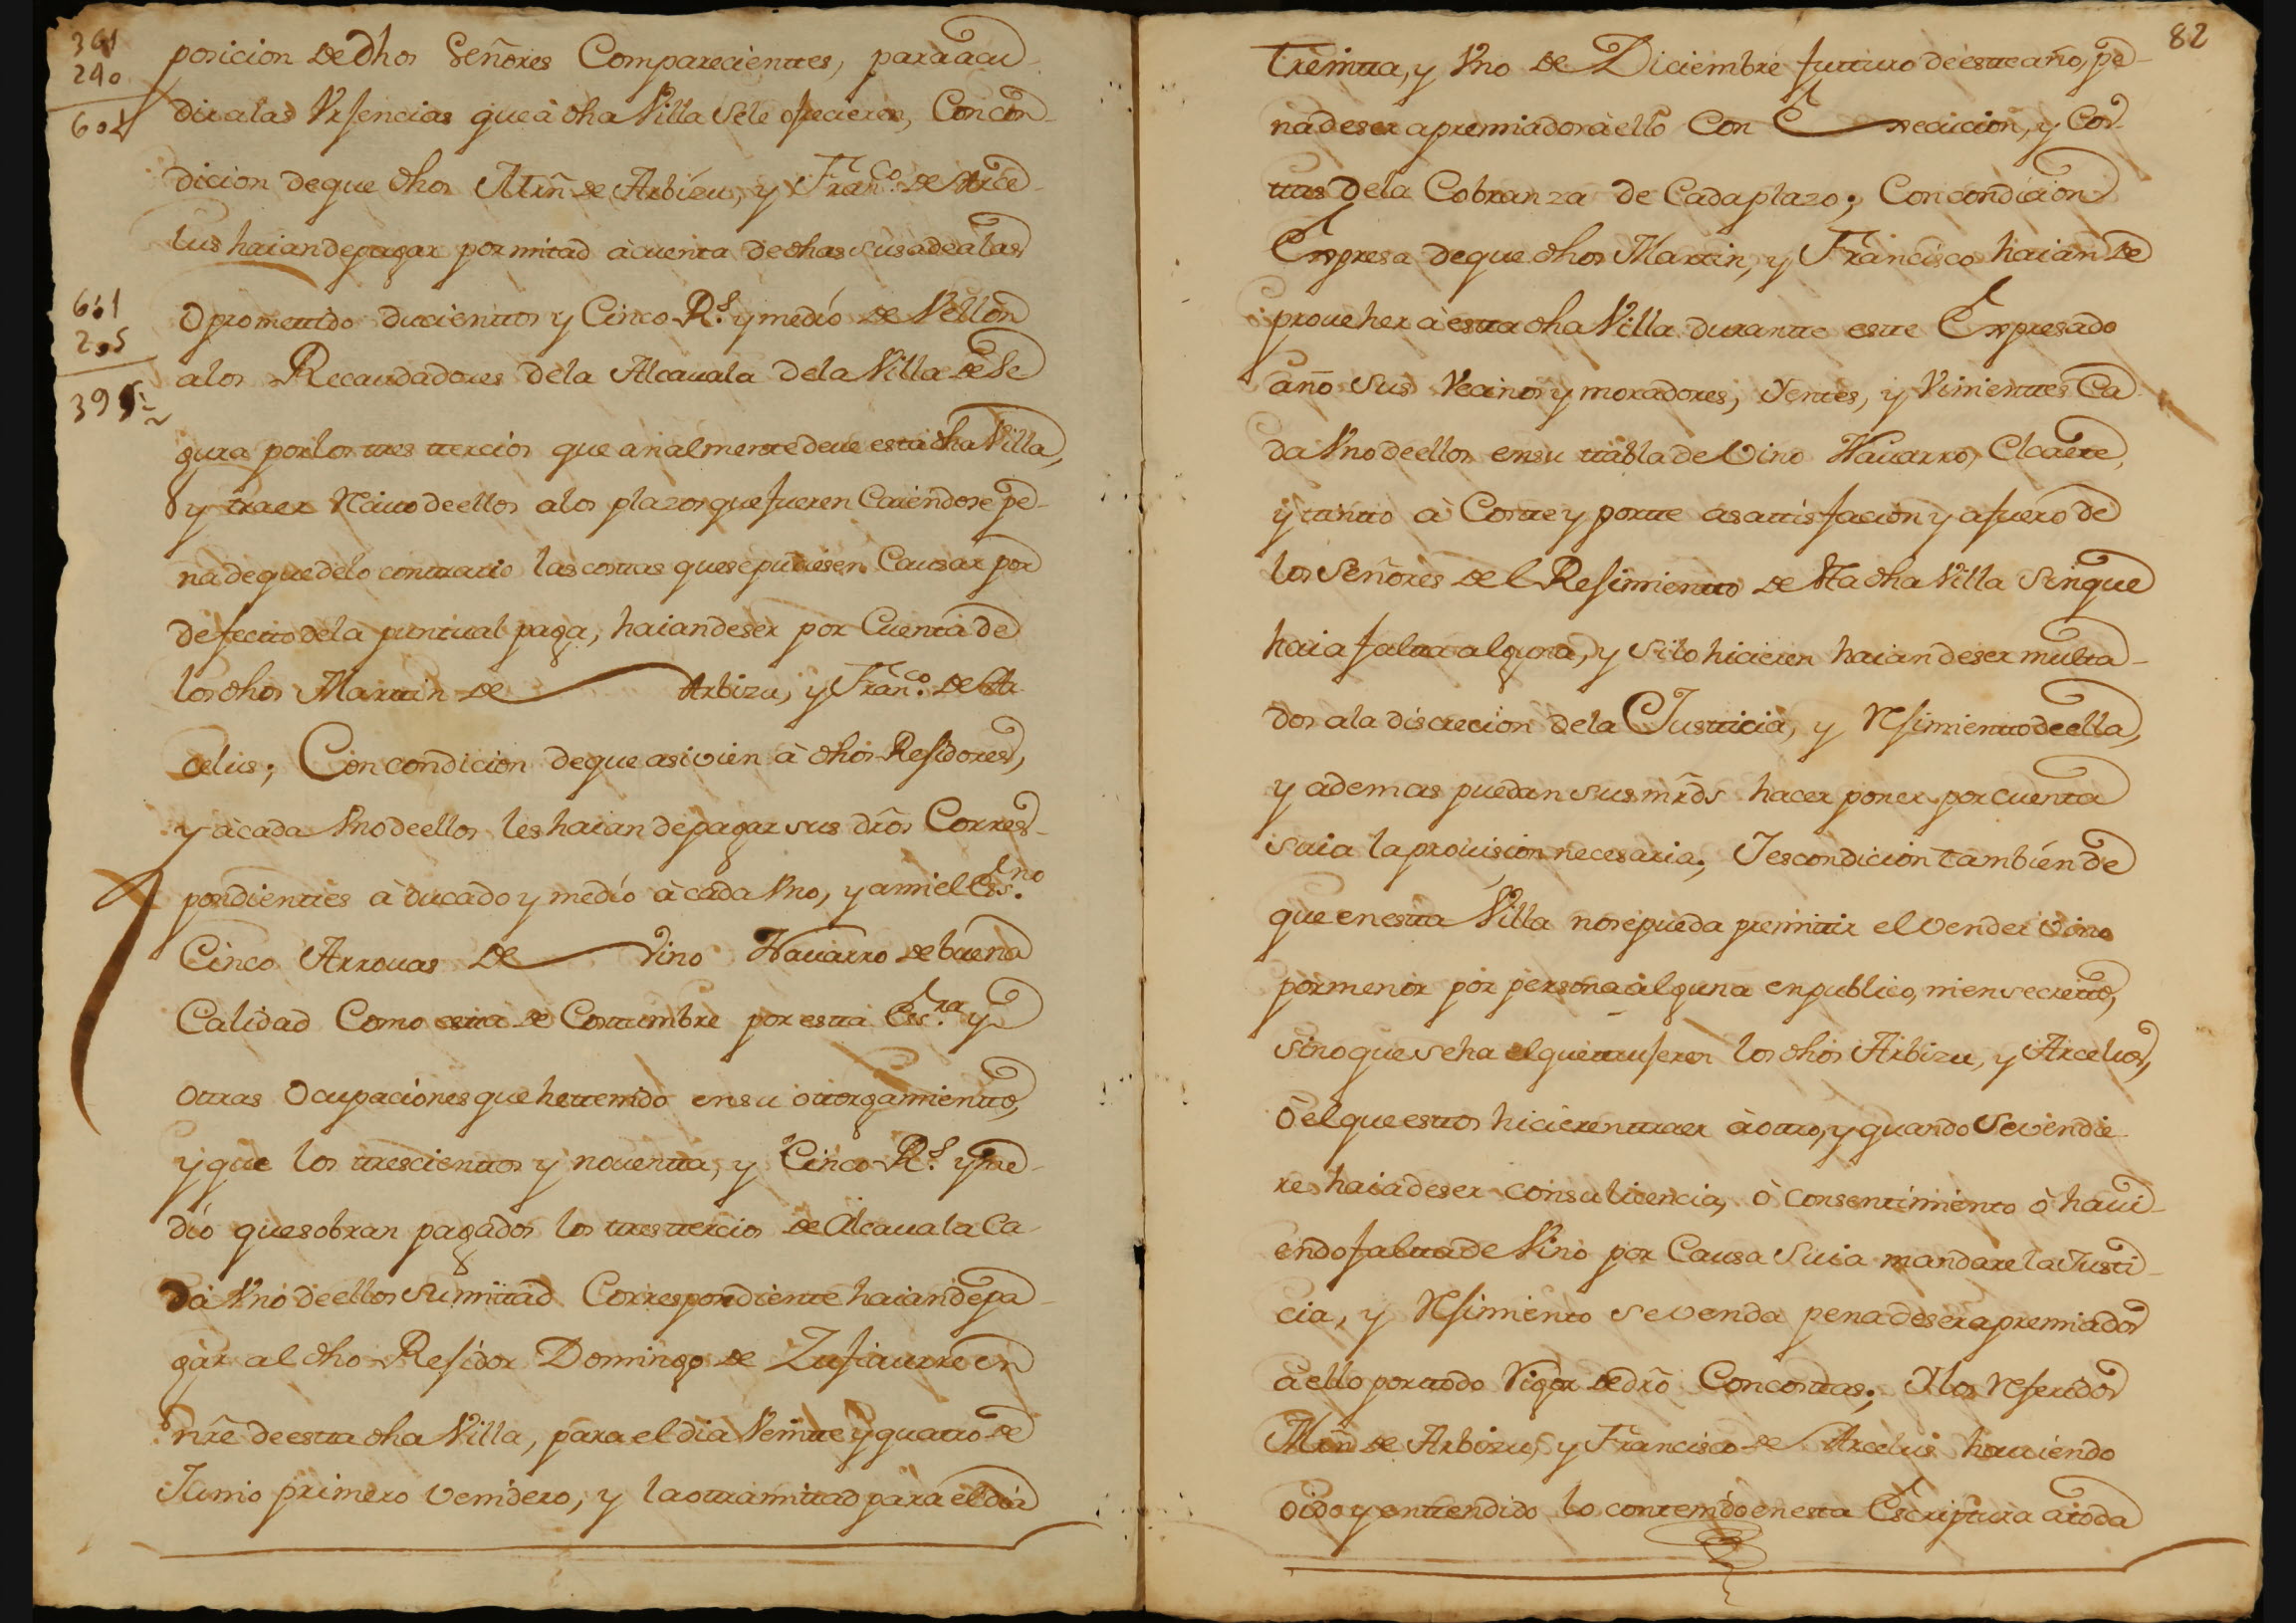 361
240
601
posicion de dhos Señores Comparecientes, para acu-
dir a las Vrjencias que à dha Villa sele ofrecieren, Con con-
dicion de que dhos Mrñ de Arbizu, y Franco. de Arce-
lus haian de pagar por mitad à cuenta de dhas sus adealas
601
205
395½
O promettido ducienttos y Cinco Rs. y medio de Vellon
a los Recaudadores dela Alcauala dela Villa de Se
gura por los tres ttercios que analmente deue esta dha Villa,
y traer Reciuo de ellos a los plazos que fueren Caiendose pe-
na de que delo conttrario las costtas que se pudiesen Causar por
defectto dela punttual paga, haian de ser por Cuenta de
los dhos Marttin de Arbizu, y Franco. de Ar-
celus; Con condicion de que asi vien à dhos Rejidores,
y à cada Vno de ellos les haian de pagar sus dros Corres-
pondienttes à ducado y medio à cada Vno, y a mi el Essno.
Cinco Arrouas de Vino Nauarro de buena
Calidad Como estta de Costtumbre por estta Essra. y
otras Ocupaciones que he ttenido en su ottorgamientto,
y que los ttrescienttos y nouentta, y Cinco Rs. y me-
dio que sobran pagados los ttres ttercios de Alcauala Ca-
da Vno de ellos su mittad Correspondiente haian de pa-
gar al dho Rejidor Domingo de Zufiaurre en
nre de estta dha Villa, para el dia Veintte y quattro de
Junio primero venidero, y la ottra mittad para el dia
82
Treintta, y Vno de Diciembre futturo de estte año, pe-
na de ser apremiados à ello Con Exsecucion, y Cos-
ttas Dela Cobranza de Cada plazo; Con condicion
Expresa de que dhos Marttin, y Francisco haian de
proueher à estta dha Villa durantte estte Expresado
año sus Vecinos y moradores, Yentes, y Vinienttes Ca-
da Vno de ellos en su ttabla de Vino Nauarro, Claette,
y ttintto à Cortte y portte à sattisfacion y a fuero de
los Señores del Rejimientto de Stta dha Villa sin que
haia faltta alguna, y si lo hicieren haian de ser multta-
dos a la discrecion dela Justticia, y Rejimientto de ella,
y ademas puedan sus mrds hacer poner por cuentta
suia la prouision necesaria; Y es condicion tambien de
que en estta Villa no se pueda premittir el vender vino
por menor por persona alguna en publico, ni en secretto,
sino que seha el que ttrujeren los dhos Arbizu, y Arcelus,
ò el que esttos hicieren ttraer à ottro, y quando se vendie-
re haia de ser con su licencia, ò consentimiento ò haui-
endo faltta de Vino por Causa suia mandare la Justi-
cia, y Rejimiento se venda pena de ser apremiados
à ello por ttodo Vigor de dro Con costtas; Y los Referidos
Mrñ de Arbizu, y Francisco de Arcelus hauiendo
oido y enttendido lo contenido en esta Escriptura à toda